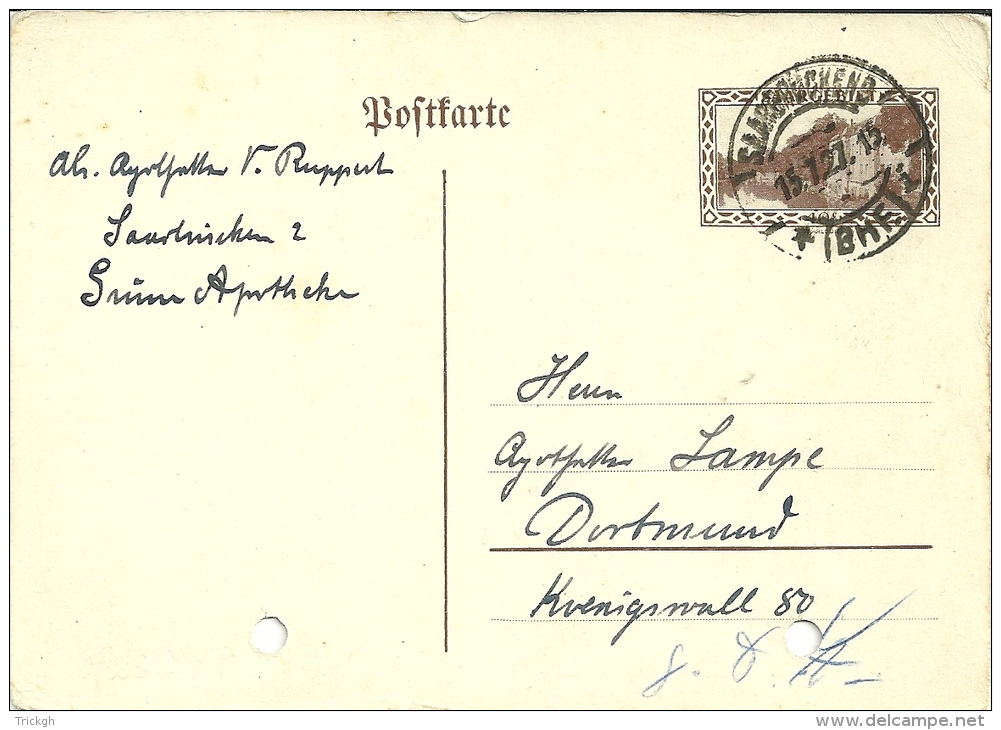 Postkarte
SAARGEBIET
SAARBRÜCKEN
15.1.27.15
* (BHF)
Abs. Apotheker V. Ruppert
Saarbrücken 2
Grüne Apotheke
Herrn
Apotheker Lampe
Dortmund
Koenigswall 80
Trickgh
www.delcampe.net